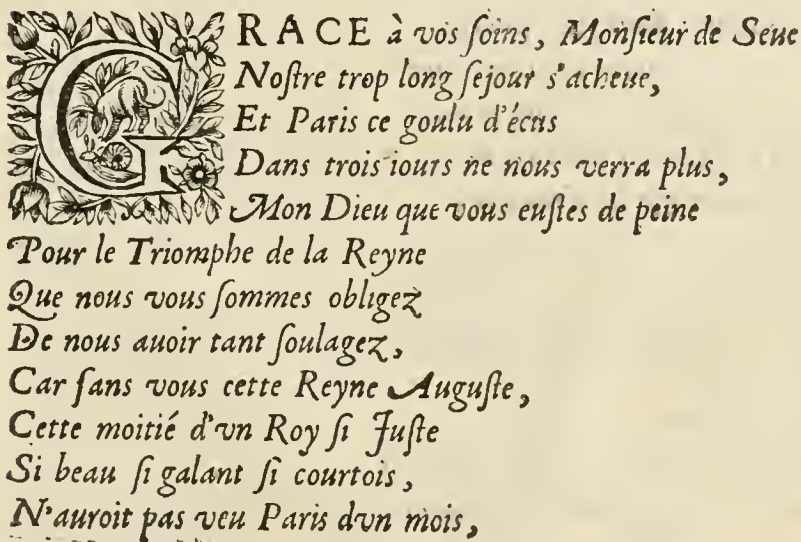 GRACE à vos ſoins, Monſieur de Seue
Noſtre trop long ſejour s'acheue,
Et Paris ce goulu d'écus
Dans trois iours ne nous verra plus,
Mon Dieu que vous euſtes de peine
Pour le Triomphe de la Reyne
Que nous vous ſommes obligez
De nous auoir tant ſoulagez,
Car ſans vous cette Reyne Auguſte,
Cette moitié d'vn Roy ſi Juſte
Si beau ſi galant ſi courtois,
N'auroit pas veu Paris dvn mois,